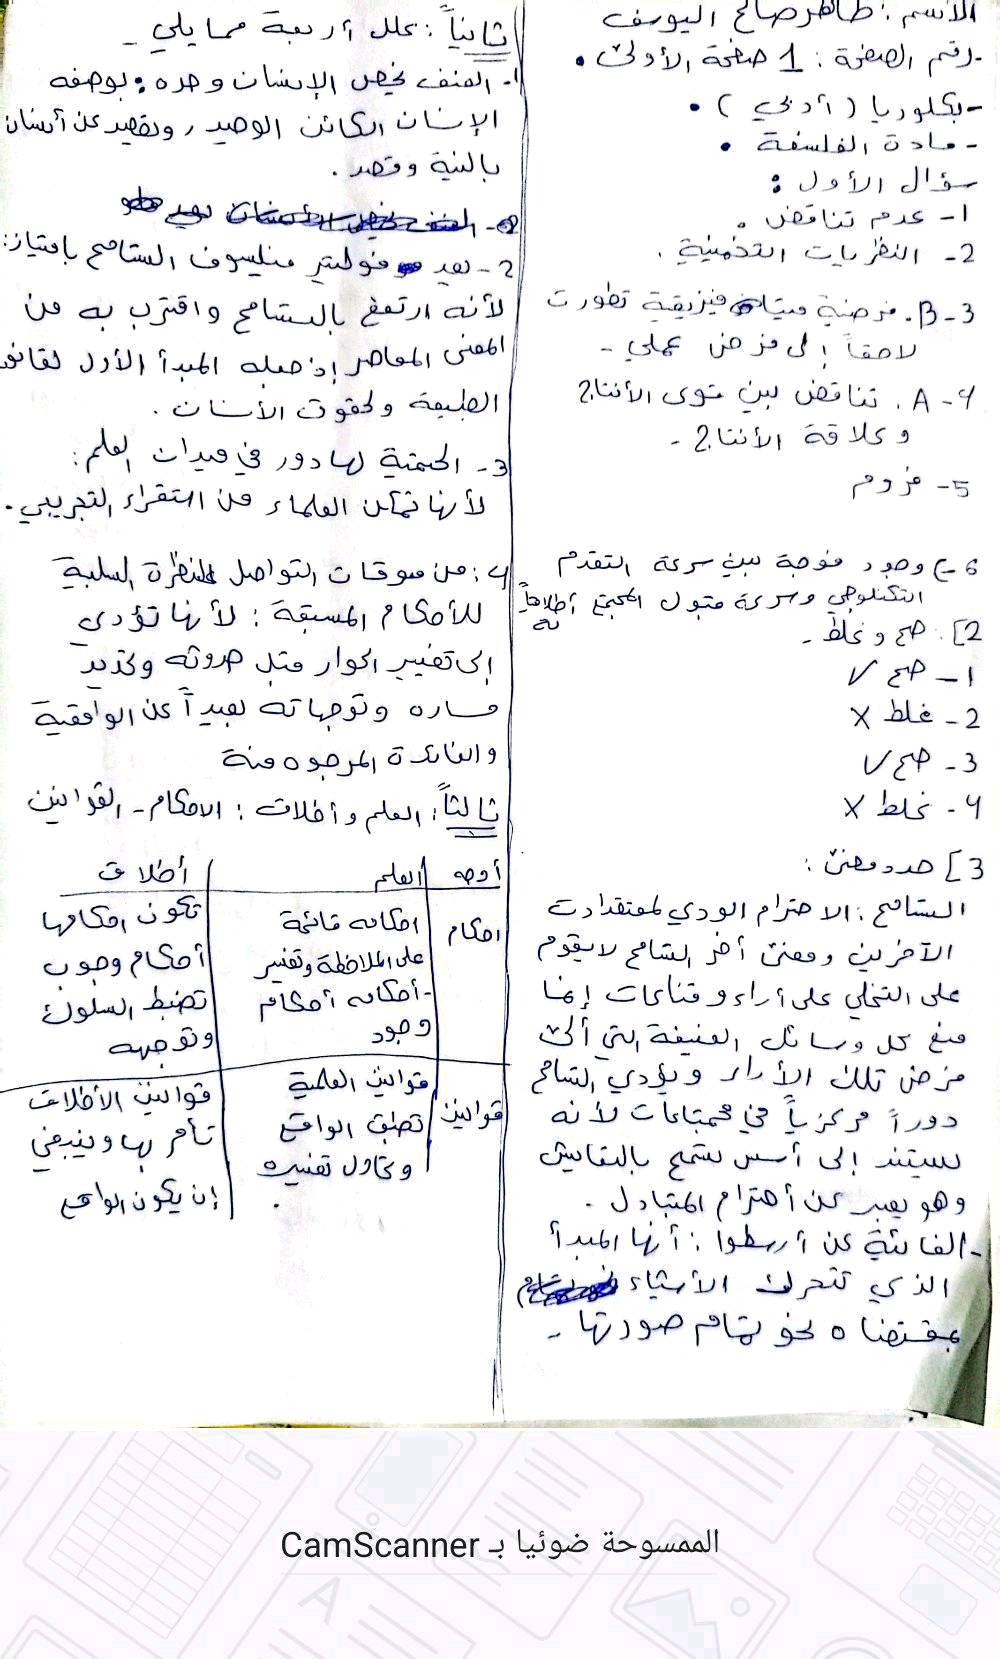 الأسم : طاهر صالح اليوسف
- رقم الصفحة : 1 صفحة الأولى .
- بكلوريا ( أدبي ) .
- مادة الفلسفة .
سؤال الأول :
1 - عدم تناقض .
2 - النظريات التخمينية .
3 - B . فرضية ميتا فيزيقية تطورت
لاحقاً إلى فرض عملي -
4 - A . تناقض بين قوى الأنتاج
وعلاقة الأنتاج -
5 -
6 - ج وجود فجوة بين سرعة التقدم
التكنولجي وسرعة قبول المجتمع
2] . صح و غلط -
1 - صح √
2 - غلط X
3 - صح √
4 - غلط X
3] حدد معنى :
التسامح : الاحترام الودي لمعتقدات
الآخرين ومعنى أخر التسامح لايقوم
على التخلي على أراء وقناعات إنما
منع كل وسائل العنيفة التي ألى
فرض تلك الأراء ويؤدي التسامح
دوراً مركزياً في مجتمعات لأنه
يستند إلى أسس تسمح بالتعايش
وهو يعبر عن أحترام المتبادل .
- الغائية عن أرسطوا : أنها المبدأ
الذي تتحرك الأشياء
بمقتضاه نحو تمام صورتها -
ثانياً : علل أربعة مما يلي -
1 - العنف يخص الإنسان وحده : بوصفه
الإنسان الكائن الوحيد , ويصدر عن أنسان
بالنية وقصد .
2 - يعد فولتير فيلسوف التسامح بامتياز :
لأنه ارتفع بالتسامح واقترب به من
المعنى المعاصر إذ جعله المبدأ الأول لقانون
الطبيعة ولحقوق الأنسان .
3 - الحتمية لها دور في ميدان العلم :
لأنها تمكن العلماء من استقراء التجريبي .
4 : من معوقات التواصل النظرة السلبية
للأحكام المسبقة : لأنها تؤدي
إلى تفسير الحوار قبل حدوثه وتحديد
مساره وتوجهاته بعيداً عن الواقعية
والفائدة المرجوه منة
ثالثاً : العلم وأخلاق : الاحكام - القوانين
أوجه العلم أخلاق
احكام
احكامه قائمة
على الملاحظة وتفسير
- أحكامه أحكام
وجود
تكون احكامها
أحكام وجوب
تضبط السلوك
وتوجهه
قوانين
قوانين العلمية
تصف الواقع
وتحاول تفسيره .
قوانين الأخلاق
تأمر بما ينبغي
إن يكون الواقع
الممسوحة ضوئيا بـ CamScanner